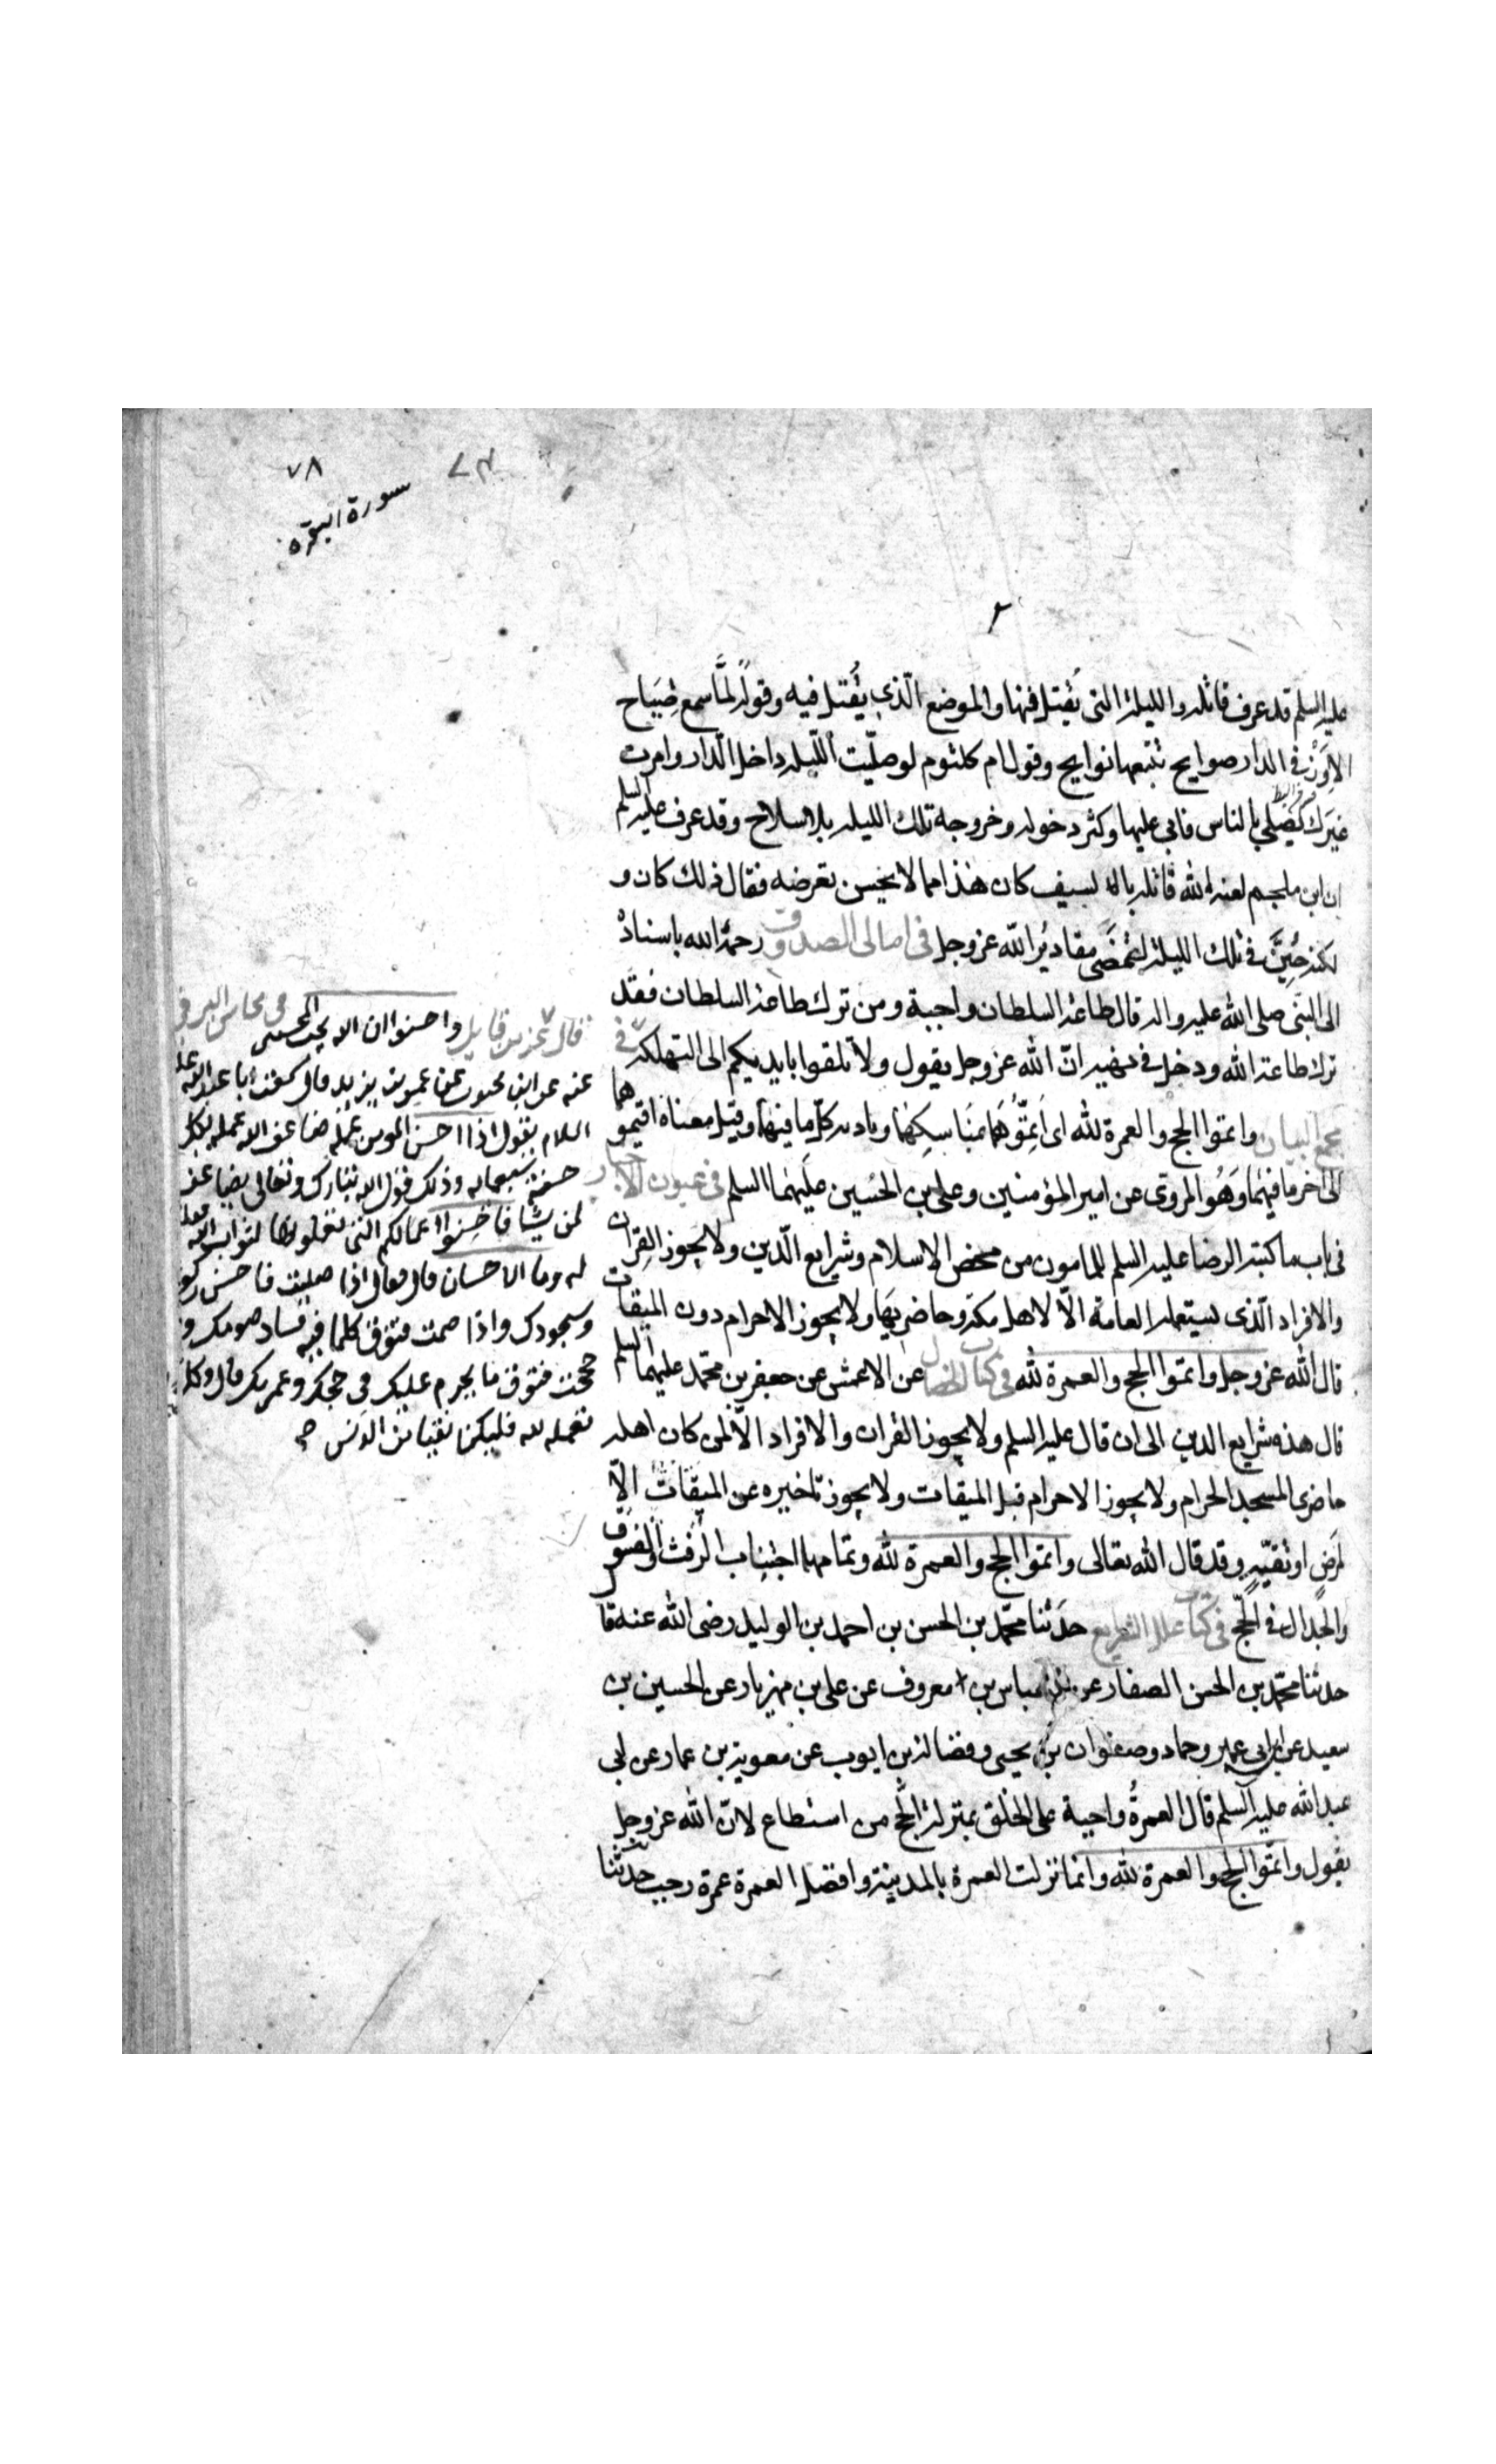 ٧٨
سورة البقرة
٢
عليه السلم قد عرف قاتله والليلة التى يُقتل فيها والموضع الّذى يُقتل فيه وقوله لمّا سمع صياح
الاِوَزّ فى الدار صوايح تتبعها نوايح وقول ام كلثوم لو صلّيت اللّيلة داخل الدّار وامرت
غيرك يصلى بالناس فابى عليها وكثر دخوله وخروجه تلك الليلة بلا سلاح وقد عرف عليه السلم
ان ابن ملجم لعنه الله قاتله بالسيف كان هذا مما لا يحسن تعرضه فقال ذلك كان و
لكنه خُيّر فى تلك الليلة لتمضى مقادير الله عز وجل فى امالى الصدوق رحمه الله باسناده
الى النبى صلى الله عليه واله قال طاعة السلطان واجبة ومن ترك طاعة السلطان فقد
ترك طاعة الله ودخل فى نهيه انّ الله عز وجل يقول ولا تلقوا بايديكم الى التهلكة فى
مجمع البيان واتموا الحج والعمرة لله اى اَتِمّوُهُمَا بمنَاسِكِهِمَا وتادية كلّ ما فيهما وقيل معناه اقيموهما
الى اخر ما فيهما وَهُو المروى عن امير المؤمنين وعلى بن الحُسين عليهما السلم فى عيون الاخبار
فى باب ما كتبه الرضا عليه السلم للمامون من محض الاسلام وشرايع الدّين ولا يجوز القِران
والافراد الّذى يستعمله العامة الّا لاهل مكة وحاضريها ولا يجوز الاحرام دون الميقات
قال الله عز وجل واتموا الحج والعمرة لله فى كتاب الخصال عن الاعمش عن جعفر بن محمد عليهما السلم
قال هذه شرايع الدين الى ان قال عليه السلم ولا يجوز القران والافراد الّا لمن كان اهله
حاضرى المسجد الحرام ولا يجوز الاحرام قبل الميقات ولا يجوز تاخيره عن الميقات الّا
لمرَضٍ او تقيّةٍ وقد قال الله تعالى واتموا الحج والعمرة لله وتمامهما اجتناب الرّفث والفسُوق
والجدال فى الحّج فى كتاب علل الشرايع حدّثنا محمّد بن الحسن بن احمد بن الوليد رضى الله عنه قا
حدثنا محمّد بن الحسن الصفار عن العباس بن معروف عن على بن مهزيار عن الحسين بن
سعيد عن ابن ابى عمير وحماد وصفوان بن يحيى وفضالة بن ايوب عن معوية بن عمار عن ابى
عبد الله عليه السلم قال العمرةُ واجبة على الخلق بمنزلة الحج من استطاع لانّ الله عز وجل
يقول واتمّوا الحج والعمرة لله وانما نزلت العمرة بالمدينة وافضل العمرة عمرة رجب حدثنا
قال عز من قايل واحسنوا ان الله يحب المحسنين فى محاسن البرقى
عنه عن ابن محبوب عن عمر بن يزيد قال سمعت ابا عبد الله عليه
السلام يقول اذا احسن المومن عمله ضاعف الله عمله بكل
حسنة سبعماية وذلك قول الله تبارك وتعالى يضاعف
لمن يشا فاحسنوا اعمالكم التى تعملونها لثواب الله فقلت
له وما الاحسان قال فقال اذا صليت فاحسن ركوعك
وسجودك واذا صمت فتوق كلما فيه فساد صومك و
حججت فتوق ما يحرم عليك فى حجك وعمرتك قال وكل
تعمله لله فليكن نقيا من الدنس